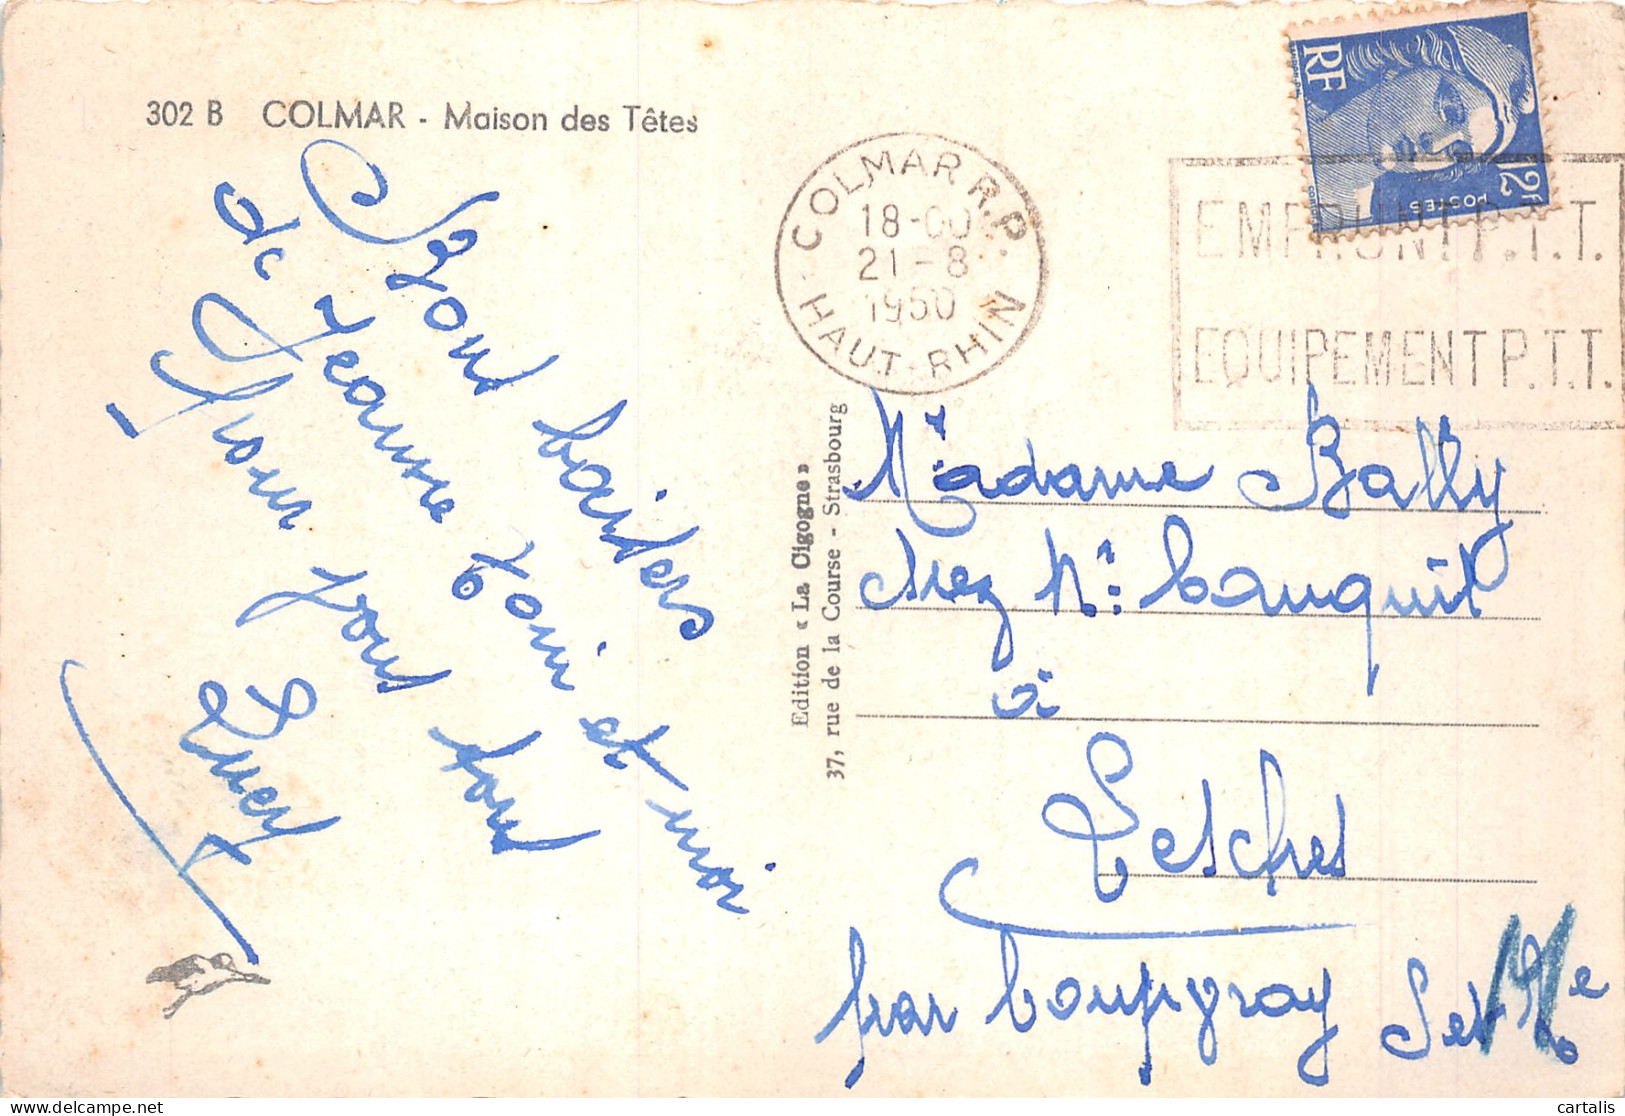 302 B COLMAR - Maison des Têtes
Bons baisers
de Jeanne Toni et moi
Pour vous tous
Lucy
Edition « La Cigogne »
37, rue de la Course - Strasbourg
COLMAR R.P.
18-00
21-8
1950
HAUT-RHIN
RF
POSTES
12F
EMPRUNT P.T.T.
EQUIPEMENT P.T.T.
Madame Bally
chez Mr
à
Lesches
par Coupvray S et Me
cartalis